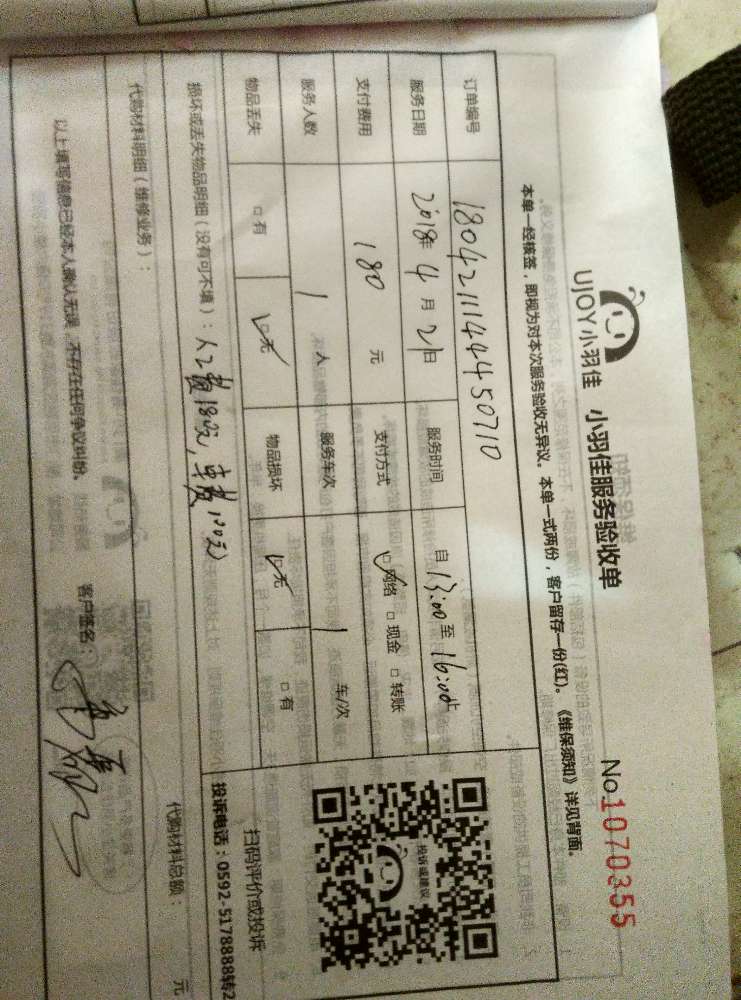 UJOY小羽佳 小羽佳服务验收单 No.1070355
本单一经核签，即视为对本次服务验收无异议。本单一式两份，客户留存一份(红)。《维保须知》详见背面。
订单编号 18042111444450710
服务日期 2018年 4 月 21日 服务时间 自 13:00 至 16:00止
支付费用 180 元 支付方式 ☑网络 □现金 □转账
服务人数 1 人 服务车次 1 车/次
物品丢失 □有 ☑无 物品损坏 ☑无 □有
投诉或建议
扫码评价或投诉
投诉电话：0592-5178888转2
损坏或丢失物品明细（没有可不填）：人工费180元，车费100元
代购材料明细（维修业务）： 代购材料总额： 元
以上填写信息已经本人确认无误，不存在任何争议纠纷。 客户签名：